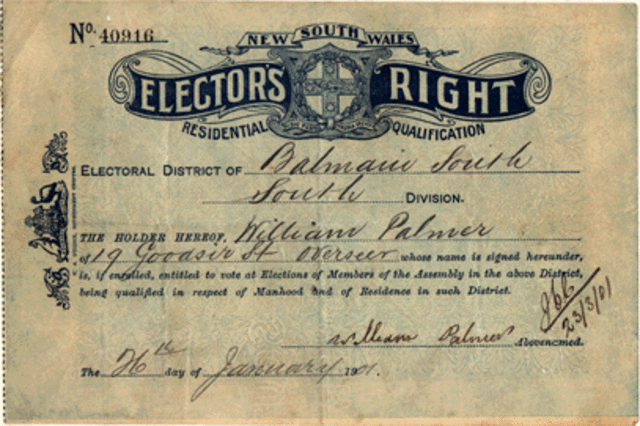 No. 40916
NEW SOUTH WALES
ELECTOR'S RIGHT
RESIDENTIAL QUALIFICATION
ELECTORAL DISTRICT OF Balmain South
South DIVISION.
THE HOLDER HEREOF, William Palmer
of 19 Goodsir St Overseer whose name is signed hereunder,
is, if enrolled, entitled to vote at Elections of Members of the Assembly in the above District,
being qualified in respect of Manhood and of Residence in such District.
866
23/3/01
William Palmer Abovenamed.
The 26th day of January 1901.